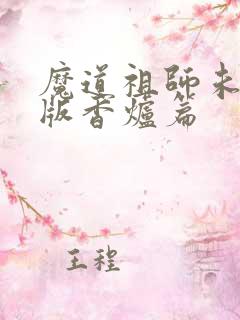 魔道祖師未
版香爐篇
王程